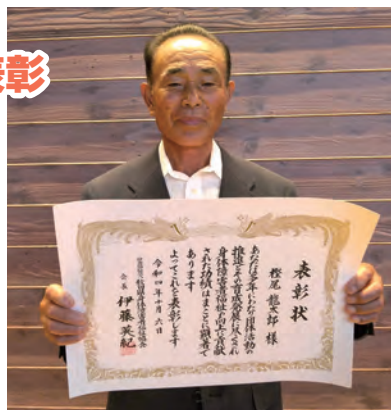 表彰
表彰状
樫尾 龍太郎 様
あなたは多年にわたり団体活動の
推進と会の育成発展に尽くされ
身体障害者福祉の向上に貢献
された功績はまことに顕著で
あります
よってこれを表彰します
令和四年十月六日
会長 伊藤英紀